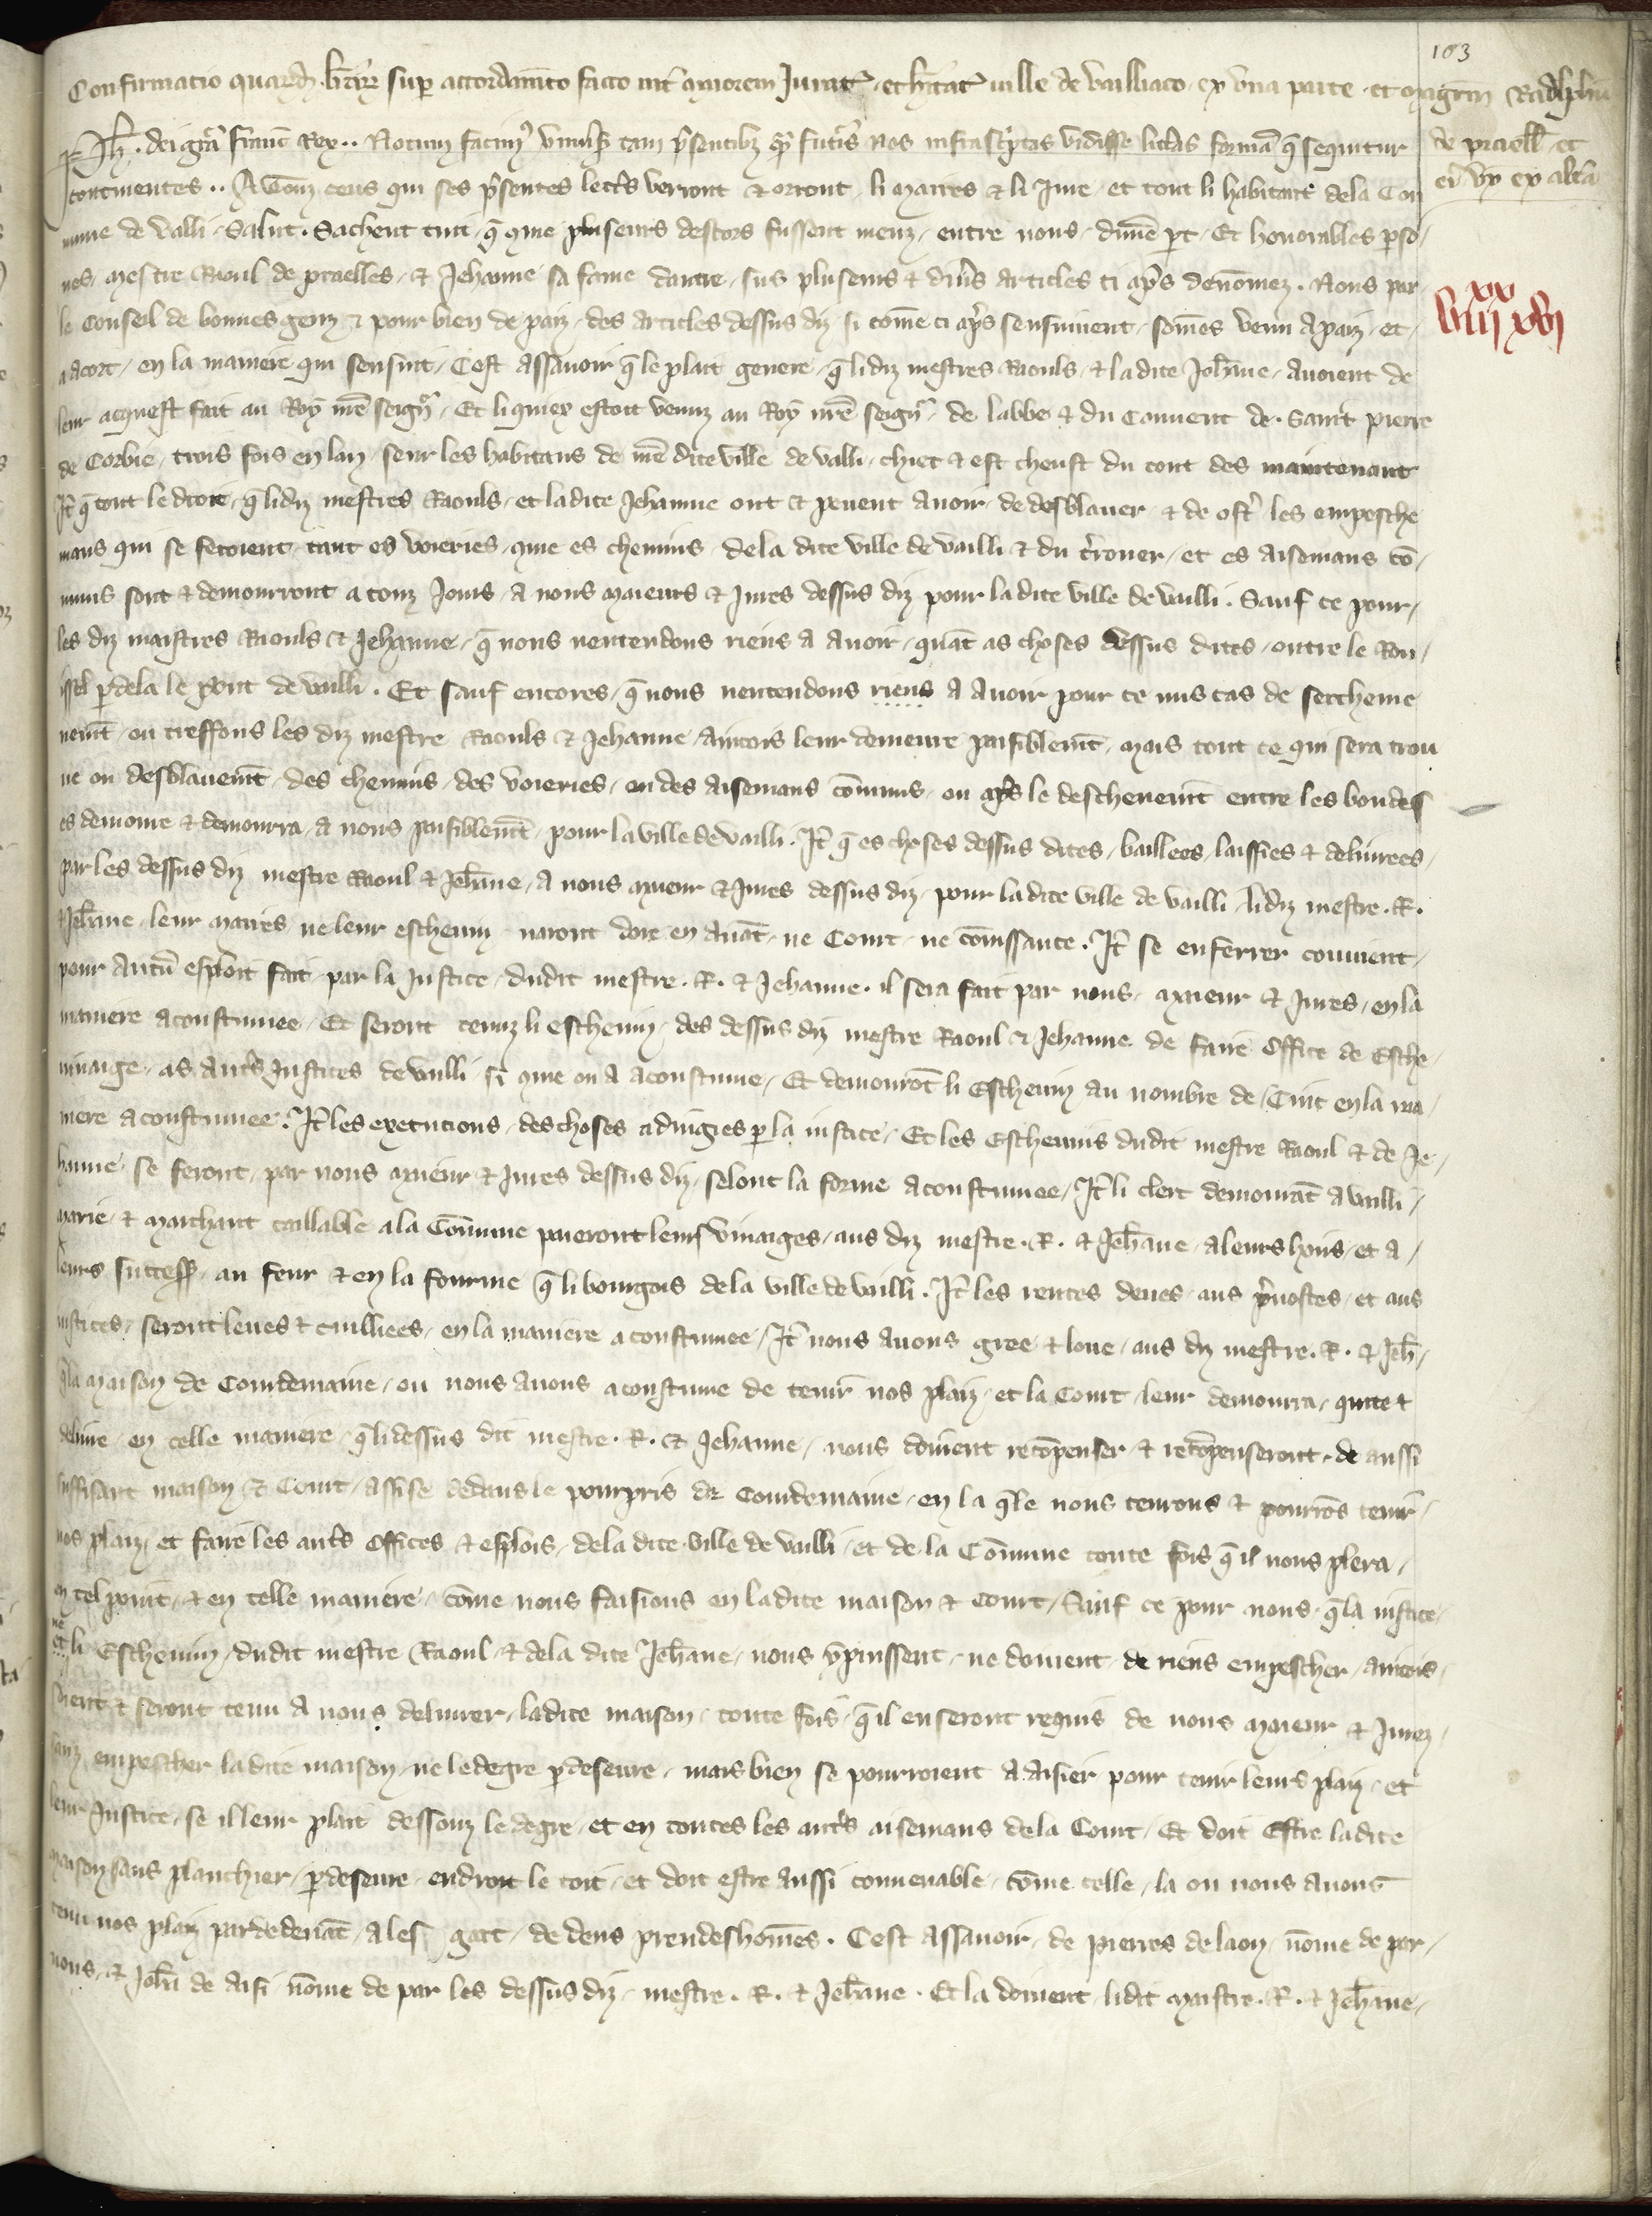 103
Confirmatio quarumdam litterarum super accordamento facto inter maiorem Iurat. et habitat. ville de Vailliaco ex vna parte et magistrum Radulphum
de praell. et
eius vx. ex altera
Ph. dei gratia franc. Rex.. Notum facimus vniuersis tam presentibus quam futuris nos infrascriptas vidisse litteras formam que sequitur
continentes.. A touz ceus qui ses presentes lettres verront & orront li maires & li Iure et tout li habitant de la Con
mune de Valli Salut. Sachent tuit que que pluseurs descors fussent meuz entre nous dune part Et honorables perso
nes mestre Raoul de praelles & Jehanne sa fame dautre sus pluseurs & diuers articles ci apres denommez. Nous par
le Conseil de bonnes genz & pour bien de paiz des articles dessus diz si comme ci apres sensuiuent sommes venu a paiz et
a acort en la maniere qui sensuit Cest assauoir que le plait genere que li diz mestres Raouls & la dite Jehanne auoient de
leur acquest fait au Roy nostre seigneur Et li quiex estoit venuz au Roy nostre seigneur de labbe & du Couuent de Saint pierre
de Corbie trois fois en lan seur les habitans de nostre dite ville de Valli chiet & est cheust du tout des maintenant
Item que tout le droit que li diz mestres Raouls et la dite Jehanne ont & peuent auoir de desblauer & de oster les empesche
mans qui se feroient tant es voieries que es chemins de la dite ville de Vailli & du terrouer et es aisemans com
muns sont & demourront a touz Jours a nous maieurs & Jures dessus diz pour la dite ville de Vailli. Sauf ce pour
les diz maistres Raouls & Jehanne que nous nentendons riens a auoir quant as choses dessus dites outre le Rou
issel par dela le pont de Vailli. Et sauf encores que nous nentendons riens a auoir pour ce nus cas de sercheme
nement ou treffons les diz mestre Raouls & Jehanne aincois leur demeure paisiblement mais tout ce qui sera trou
ue ou desblauement des chemins des voieries ou des aisemans communs ou apres le deschenement entre les bondes
es demoure & demourra a nous paisiblement pour la ville de Vailli. Item que es choses dessus dites baillees laissies & deliurees
par les dessus diz mestre Raoul & Jehanne a nous maieur & Jures dessus diz pour la dite ville de Vailli li diz mestre. R.
& Jehanne leur maires ne leur escheuin naront dore en auant ne Court ne connissance. Item se enferrer conuient
pour aucun esploit fait par la Justice dudit mestre. R. & Jehanne. il sera fait par nous maieur & Jures en la
maniere acoustumee Et seront tenuz li escheuin des dessus diz mestre Raoul & Jehanne de faire Office de Esche
uinaige as autres Justices de Vailli si que on a acoustume Et demourront li Escheuin au nombre de Cuit en la ma
niere acoustumee. Item les execucions des choses adiugies par la iustice Et les Escheuins dudit mestre Raoul & de Je
hanne se feront par nous maieur & Jures dessus diz selont la forme acoustumee Item li clerc demourant a Vailli
marie & marchant taillable a la Commune paieront leurs vinaiges aus diz mestre. R. & Jehanne a leurs hoirs et a
leurs success. au feur & en la fourme que li bourgois de la ville de Vailli. Item les rentes deues aus preuostes et aus
iustices seront leues & cuillies en la maniere acoustumee Item nous auons gree & loue aus diz mestre. R. & Jeh.
que la maison de Courdemaine ou nous auons acoustume de tenir nos plaiz et la Court leur demourra quitte &
deliure en telle maniere que li dessus dit mestre. R. & Jehanne nous doiuent recompenser & recompenseront de aussi
suffisant maison & Court assise dedans le pourpris de Courdemaine en la quele nous tenrons & pourrons tenir
nos plaiz et faire les autres Offices & esplois de la dite ville de Vailli et de la Commune toute fois que il nous plera
en tel point & en telle maniere comme nous faisions en la dite maison & Court Sauf ce pour nous que la iustice
ne
et li Escheuin dudit mestre Raoul & de la dite Jehanne nous y puissent ne doiuent de riens empescher aincois
soient & seront tenu a nous deliurer la dite maison toute fois que il en seront requis de nous maieur & Jurez
sanz empescher la dite maison ne le degre par deseure mais bien se pourroient aaisier pour tenir leurs plaiz et
leur Justice se il leur plait dessouz le degre et en toutes les autres aisemans de la Court Et doit Estre la dite
maison sans planchier par deseure endroit le toit et doit estre aussi conuenable comme celle la ou nous auons
tenu nos plaiz par dedeuant a lesgart de deus preudeshommes. Cest assauoir de pierres de laon nomme de par
nous & Jehan de Aisi nomme de par les dessus diz mestre. R. & Jehanne. Et la doiuent li dit maistre. R. & Jehanne